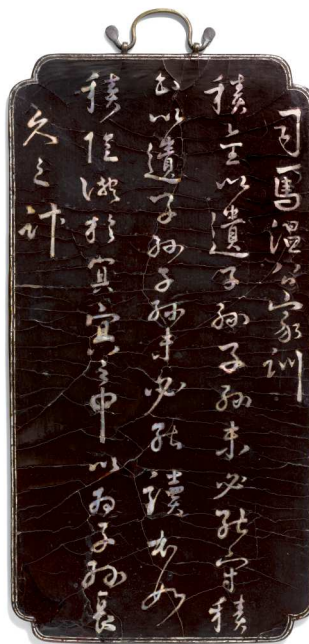 司馬溫公家訓
積金以遺子孫子孫未必能守積
書以遺子孫子孫未必能讀不如
積陰德於冥冥之中以為子孫長
久之計